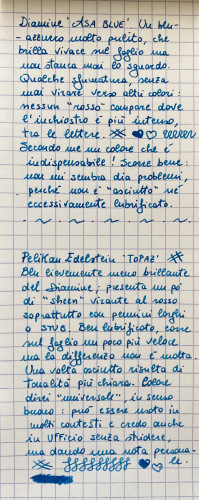 Diamine 'ASA BLUE'. Un blu-
-azzurro molto pulito, che
brilla vivace sul foglio ma
mai stanca mai lo sguardo.
Qualche sfumatura, senza
mai virare verso altri colori:
nessun "rosso" compare dove
l'inchiostro è più intenso,
tra le lettere.
Secondo me un colore che è
indispensabile! Scorre bene:
non mi sembra dia problemi,
perché non è "asciutto" né
eccessivamente lubrificato.
Pelikan Edelstein 'TOPAZ'
Blu lievemente meno brillante
del Diamine; presenta un pò
di "sheen" virante al rosso
soprattutto con pennini larghi
o STUB. Ben lubrificato, corre
sul foglio un poco più veloce
ma la differenza non è molta.
Una volta asciutto risulta di
tonalità più chiara. Colore
direi "universale", in senso
buono: può essere usato in
molti contesti e credo anche
in UFFicio senza stridere,
ma dando una nota persona-
le.